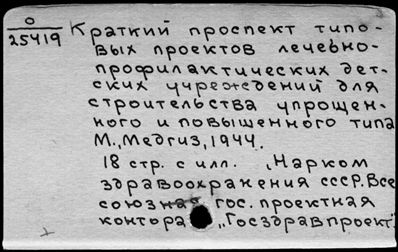 0
25419
Краткий проспект типо-
вых проектов лечебно-
профилактических дет-
ских учреждений для
строительства упрощен-
ного и повышенного типа
М., Медгиз, 1944.
18 стр. с илл. , Нарком
здравоохранения СССР. Все
союзная гос. проектная
контора "Госздравпроект"